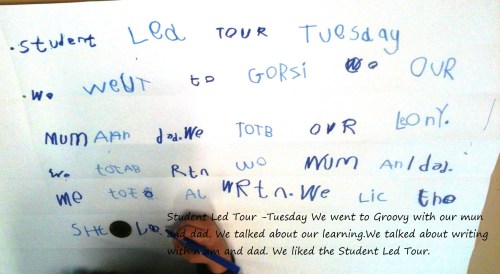 .Student Led TOUR Tuesday
.we WeUT to GORSi Wo OUR
MUM AAn dad.We TOTB OVR LeOnY.
we TOTAB Rtn wo MUM An/dad.
We AL WRtn.We Lic the
SHt Le
Student Led Tour -Tuesday We went to Groovy with our mun
and dad. We talked about our learning.We talked about writing
with mum and dad. We liked the Student Led Tour.